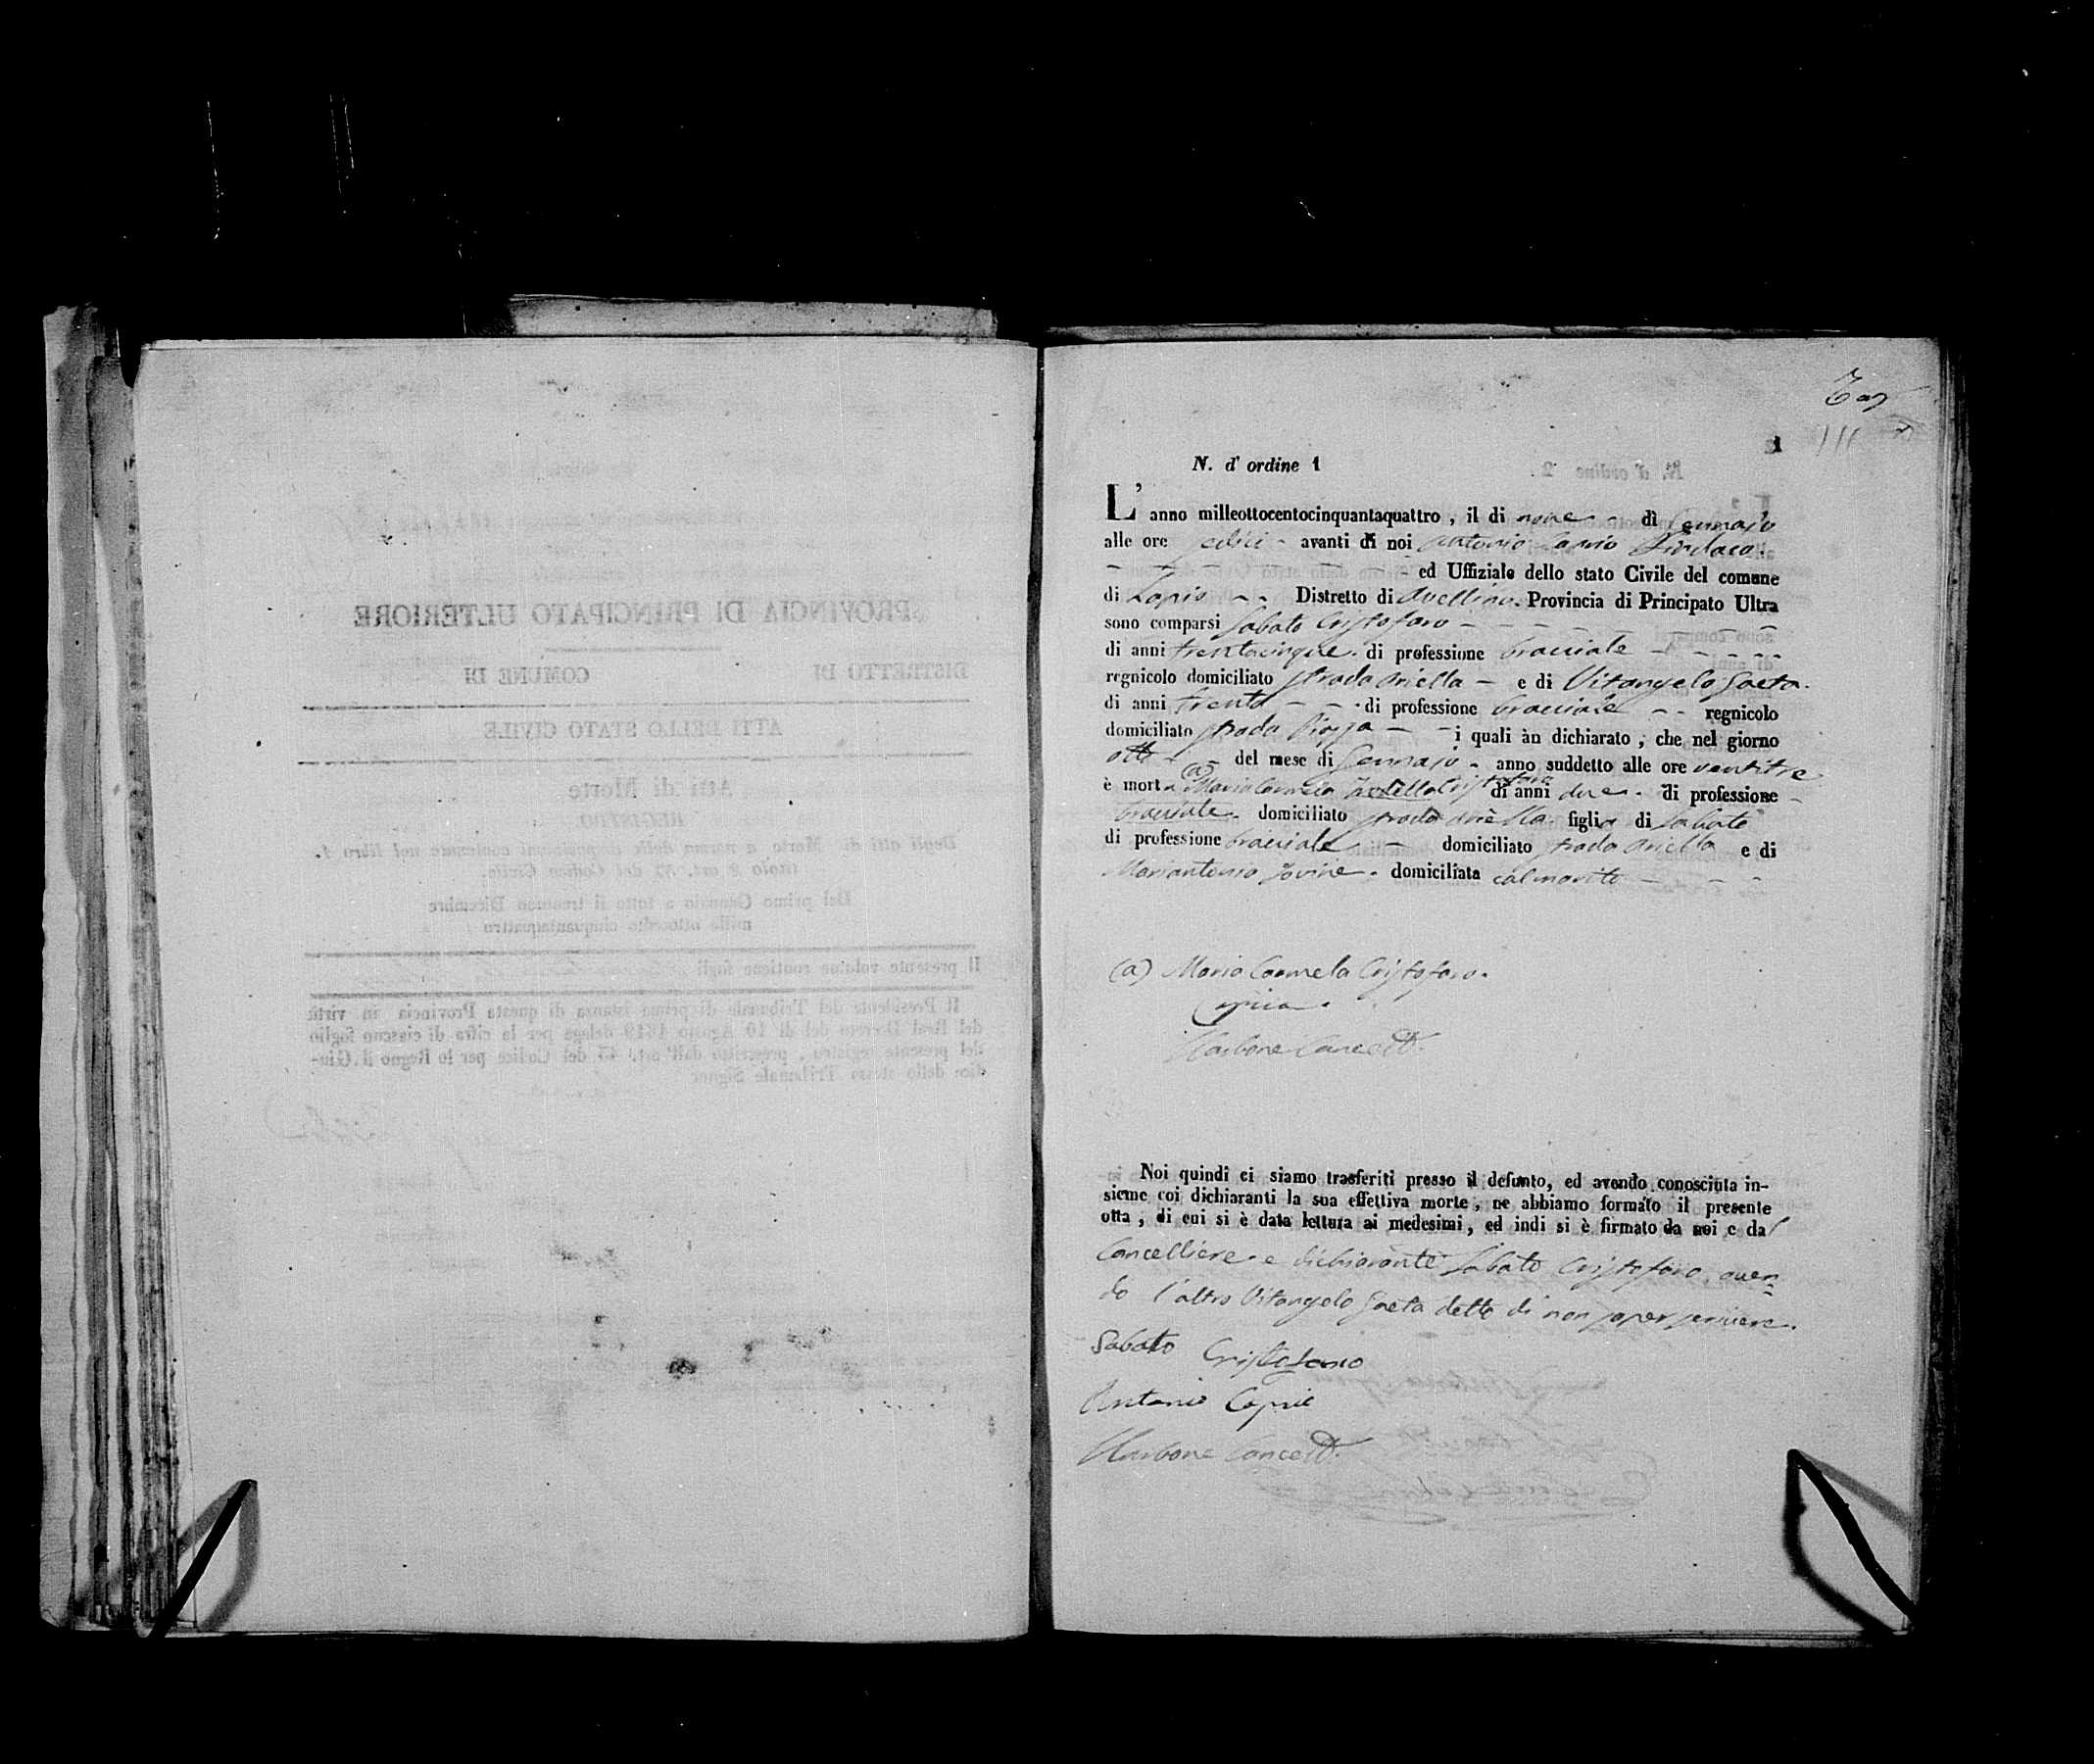 1
N. d' ordine 1
L' anno milleottocentocinquantaquattro , il di nove - di Gennajo
alle ore sedici - avanti di noi Antonio Caprio Sindaco.
ed Uffiziale dello stato Civile del comune
di Lapio - - Distretto di Avellino. Provincia di Principato Ultra
sono comparsi Sabato Cristofaro -
di anni trentacinque. di professione bracciale -
regnicolo domiciliato strada Ariella - e di Vitangelo Gaeta.
di anni trenta - - di professione bracciale - - regnicolo
domiciliato strada Piazza - - i quali àn dichiarato , che nel giorno
otto - - del mese di Gennajo - anno suddetto alle ore ventitre
è morta (a) Maria Carmela Cristofaro di anni due - di professione -
bracciale. domiciliato strada Ariella. figlia di Sabato
di professione bracciale - domiciliato strada Ariella e di
Mariantonia Jovine. domiciliata col marito -
(a) Maria Carmela Cristofaro.
Caprio.
Carbone Canc.
Noi quindi ci siamo trasferiti presso il defunto, ed avendo conosciuta in-
sieme coi dichiaranti la sua effettiva morte, ne abbiamo formato il presente
otta , di cui si è data lettura ai medesimi, ed indi si è firmato da noi e dal
Cancelliere e dichiarante Sabato Cristofaro, aven-
do l'altro Vitangelo Gaeta detto di non saper scrivere.
Sabato Cristofano
Antonio Caprio
Carbone Canc.
PROVINCIA DI PRINCIPATO ULTERIORE
DISTRETTO DI COMUNE DI
ATTI DELLO STATO CIVILE
Atti di Morte
REGISTRO